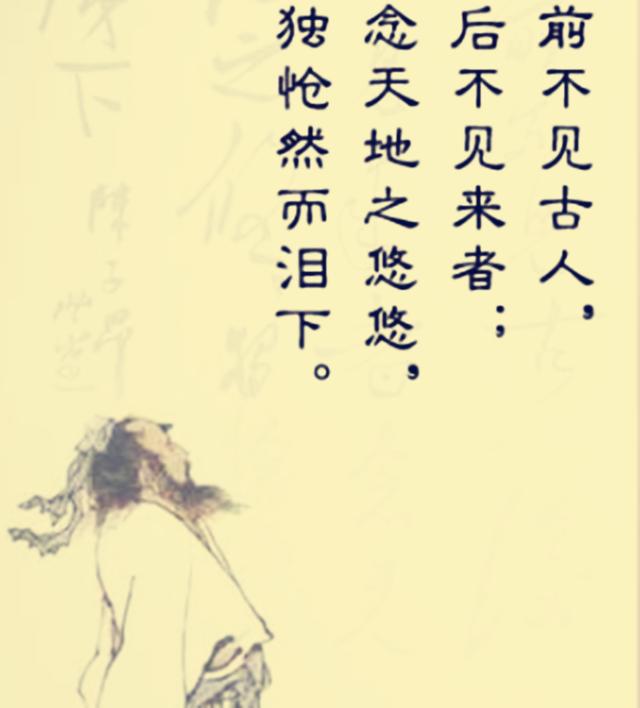 前不见古人，
后不见来者；
念天地之悠悠，
独怆然而泪下。